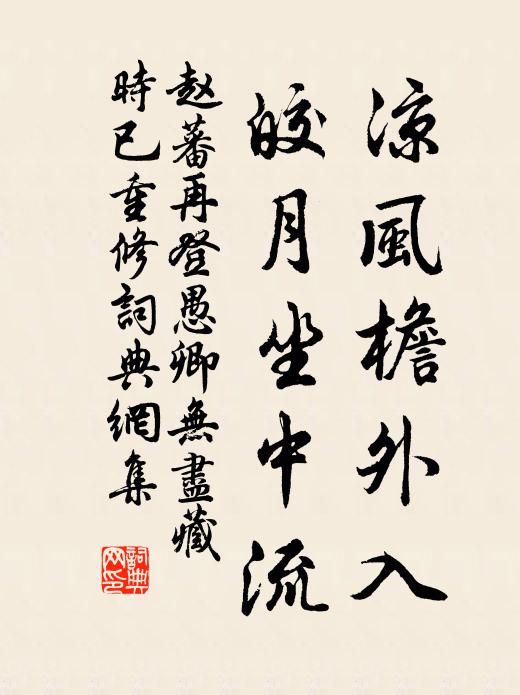 凉風檐外入
皎月坐中流
赵蕃再登愚卿無盡藏
時已重修詞典網集
詞典网印